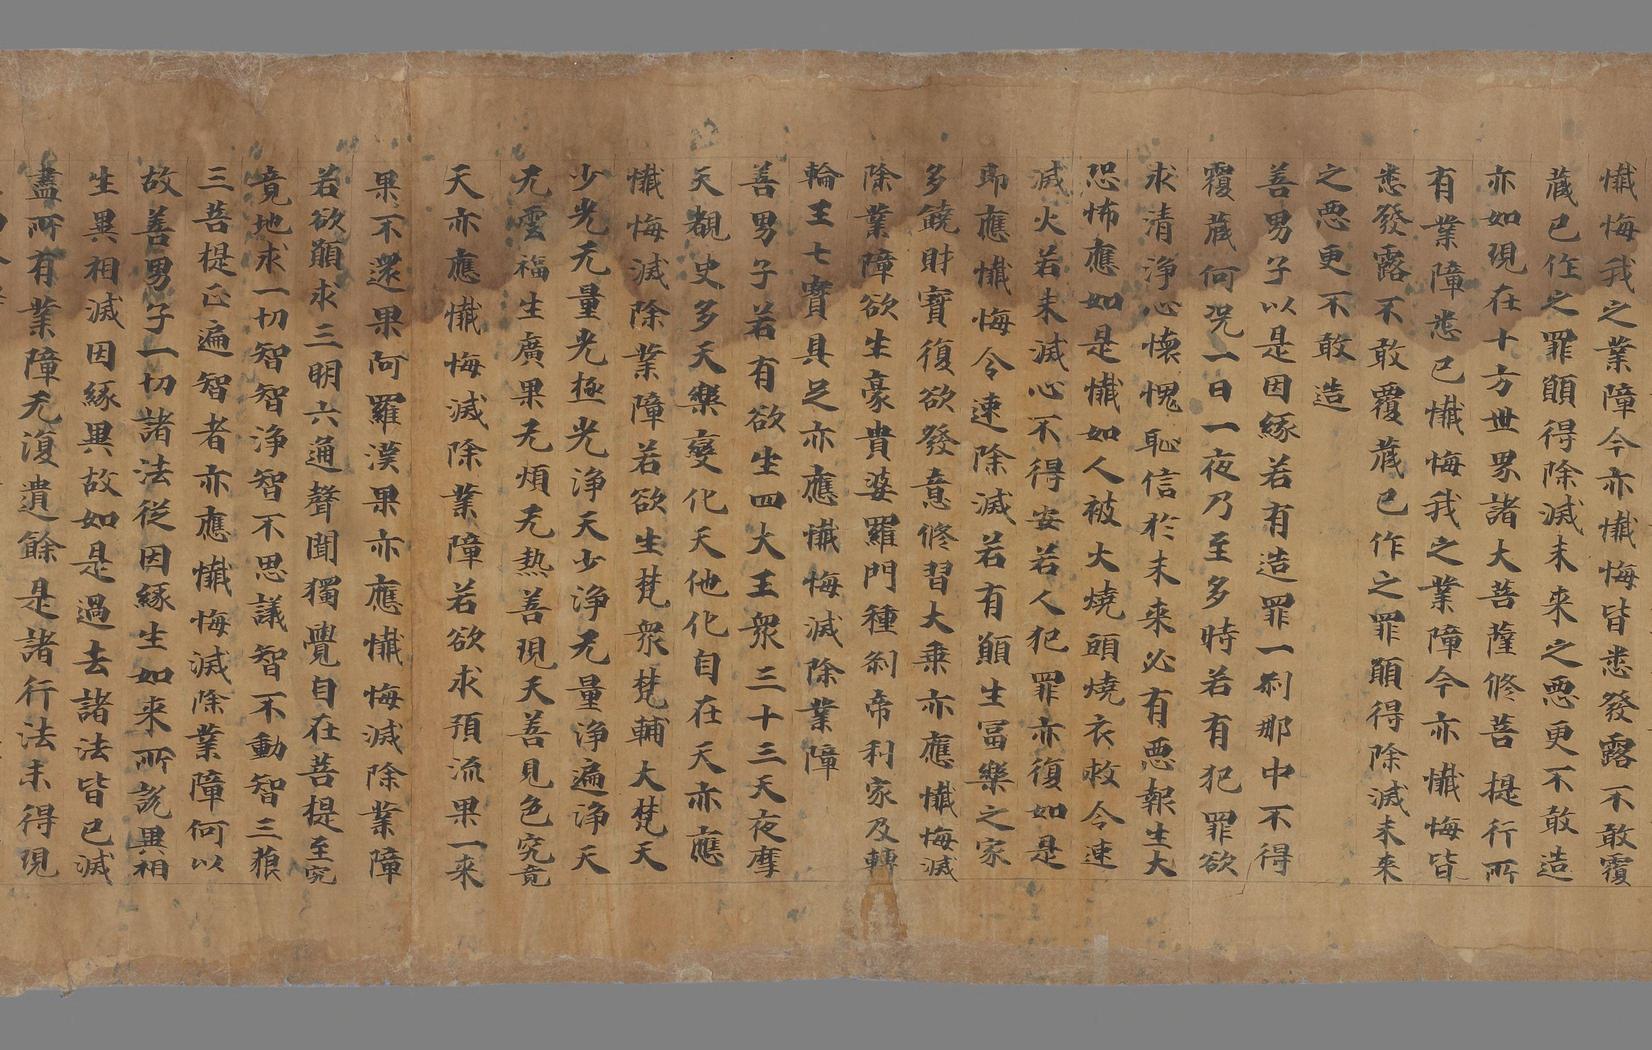 懺悔我之業障今亦懺悔皆悉發露不敢覆
蔵已作之罪願得除滅未來之惡更不敢造
亦如現在十方世界諸大菩薩修菩提行所
有業障悉已懺悔我之業障今亦懺悔皆
悉發露不敢覆蔵已作之罪願得除滅未來
之惡更不敢造
善男子以是因緣若有造罪一剎那中不得
覆蔵何況一日一夜乃至多時若有犯罪欲
求清淨心懷愧恥信於未來必有惡報生大
恐怖應如是懺如人被火燒頭燒衣救令速
滅火若未滅心不得安若人犯罪亦復如是
即應懺悔令速除滅若有願生冨樂之家
多饒財寶復欲發意修習大乗亦應懺悔滅
除業障欲生豪貴婆羅門種剎帝利家及轉
輪王七寶具足亦應懺悔滅除業障
善男子若有欲生四大王衆三十三天夜摩
天覩史多天樂變化天他化自在天亦應
懺悔滅除業障若欲生梵衆梵輔大梵天
少光无量光極光淨天少淨无量淨遍淨天
无雲福生廣果无煩无热善現天善見色究竟
天亦應懺悔滅除業障若欲求預流果一来
果不還果阿羅漢果亦應懺悔滅除業障
若欲願求三明六通聲聞獨覺自在菩提至究
竟地求一切智智淨智不思議智不動智三藐
三菩提正遍智者亦應懺悔滅除業障何以
故善男子一切諸法從因緣生如來所說異相
生異相滅因緣異故如是過去諸法皆已滅
盡所有業障无復遺餘是諸行法未得現